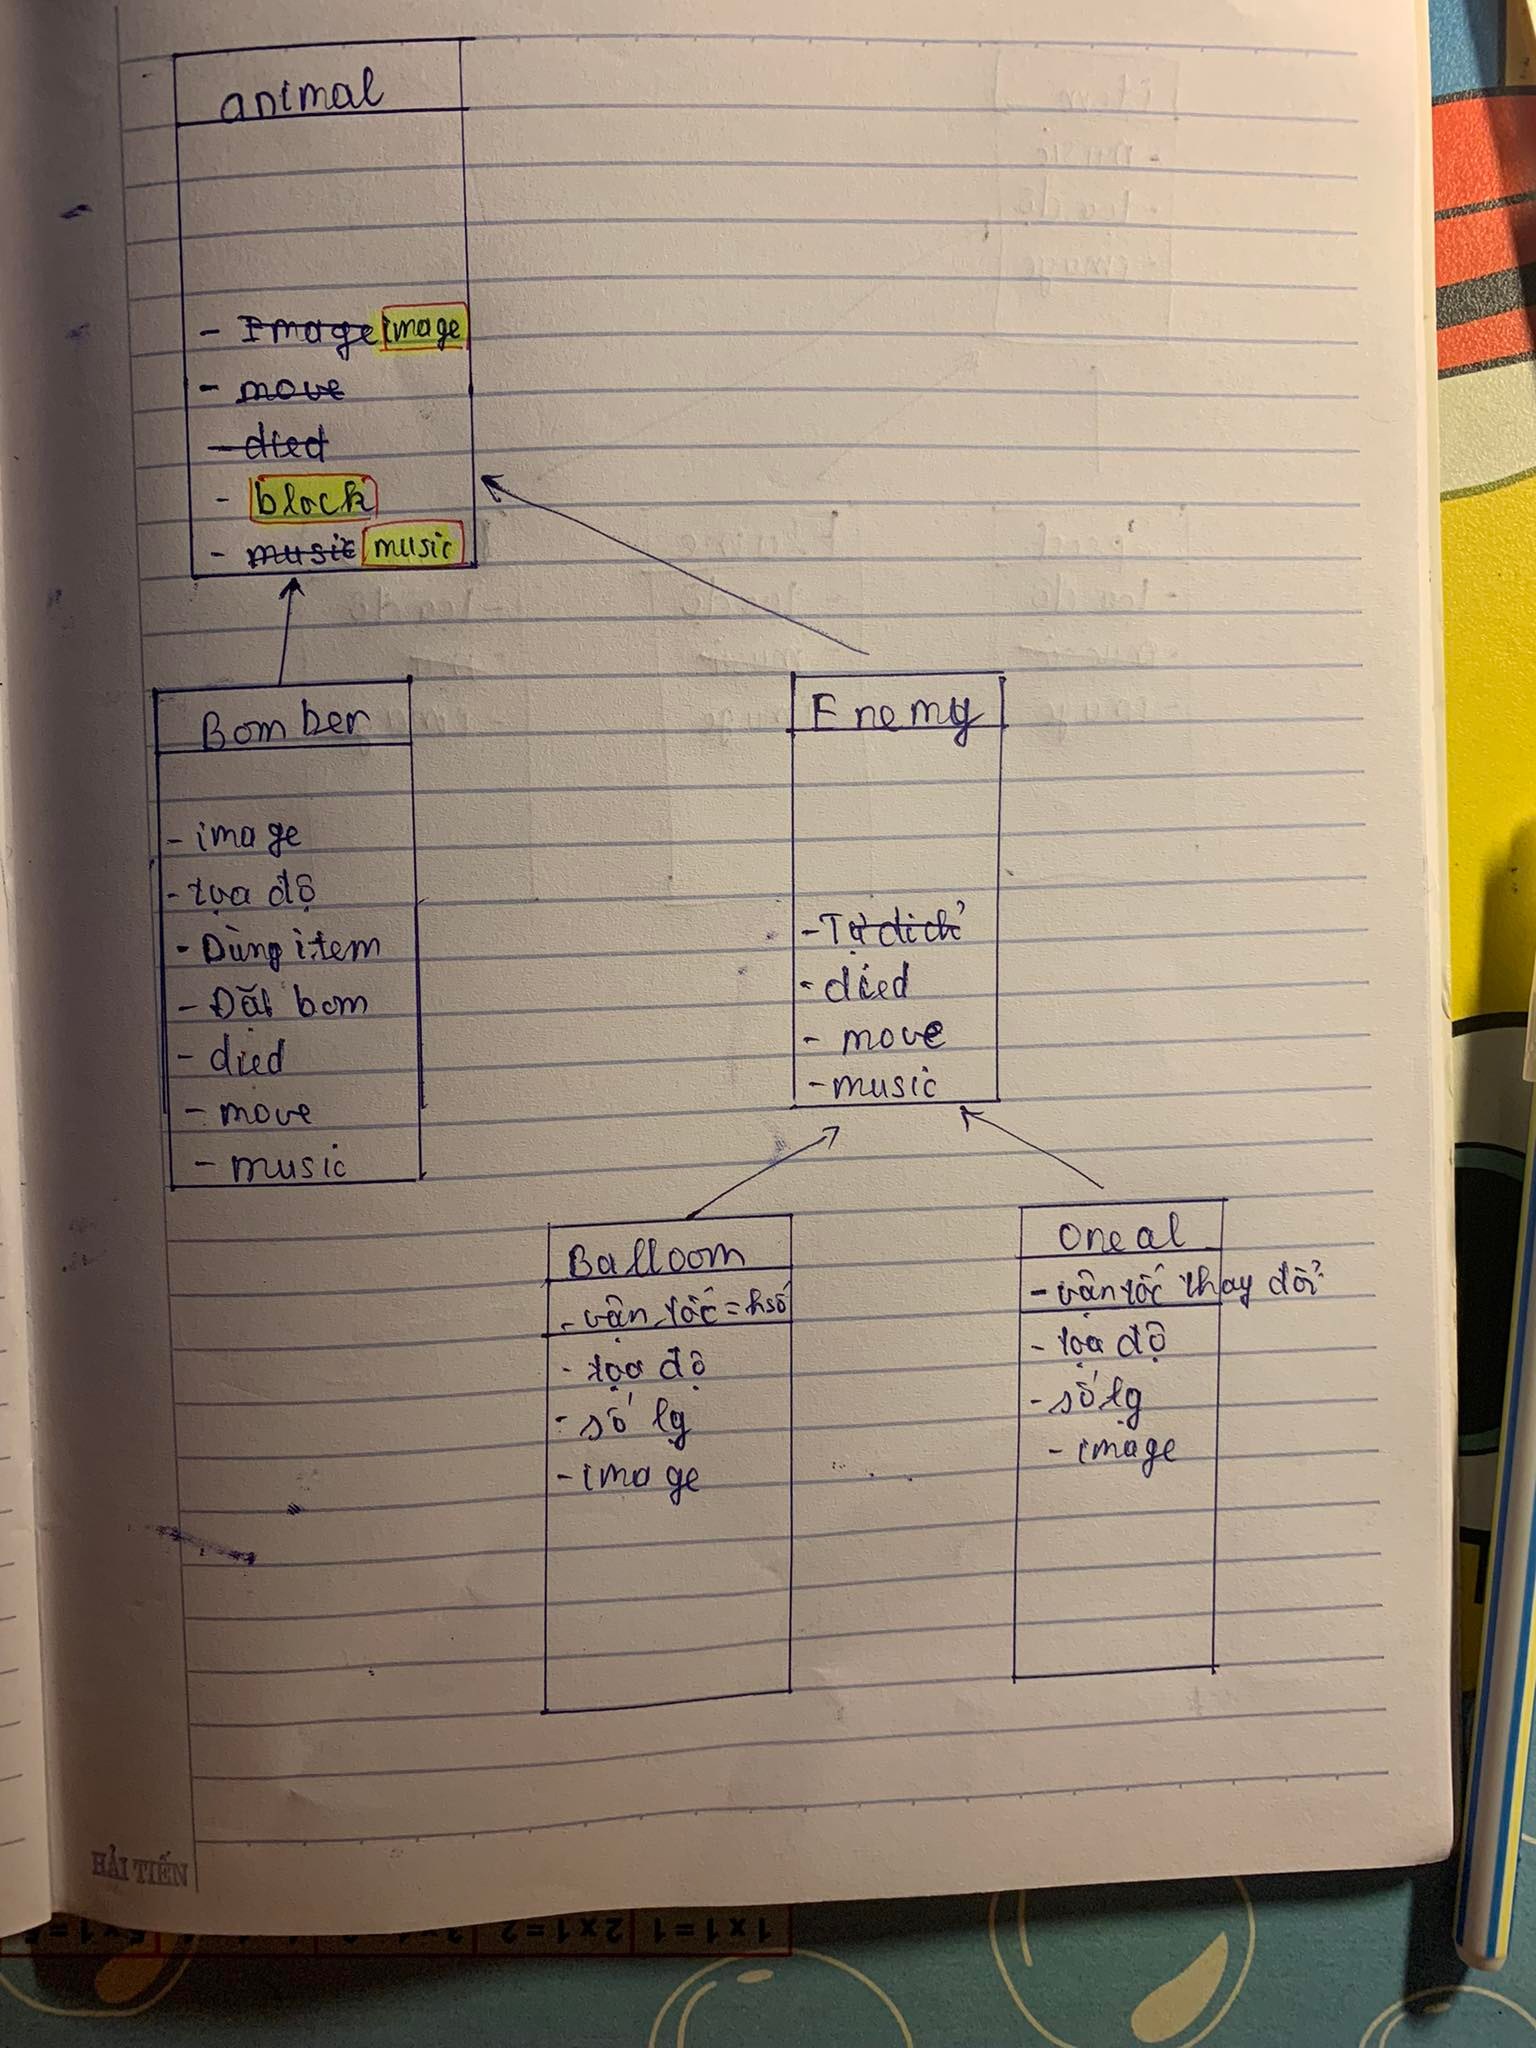 animal
- Image image
- move
- died
- block
- music music
Bomber
- image
- tọa độ
- Dùng item
- Đặt bom
- died
- move
- music
Enemy
- died
- move
- music
Balloom
- vận tốc = hsố
- tọa độ
- số lg
- image
Oneal
- vận tốc thay đổi
- tọa độ
- số lg
- image
HẢI TIẾN
1x1=1
2x1=2